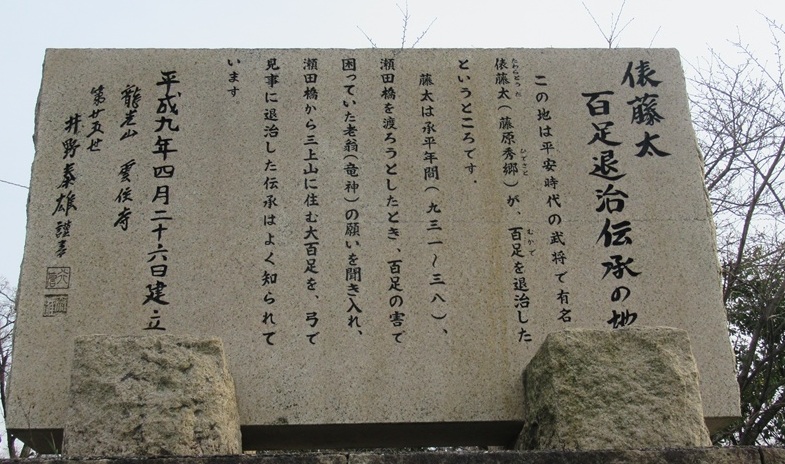 俵藤太
百足退治伝承の地
この地は平安時代の武将で有名
俵藤太(藤原秀郷)が、百足を退治した
というところです。
藤太は承平年間(九三一〜三八)、
瀬田橋を渡ろうとしたとき、百足の害で
困っていた老翁(竜神)の願いを聞き入れ、
瀬田橋から三上山に住む大百足を、弓で
見事に退治した伝承はよく知られて
います。
平成九年四月二十六日建立
龍光山 雲住寺
第廿五世
井野泰雄 謹書